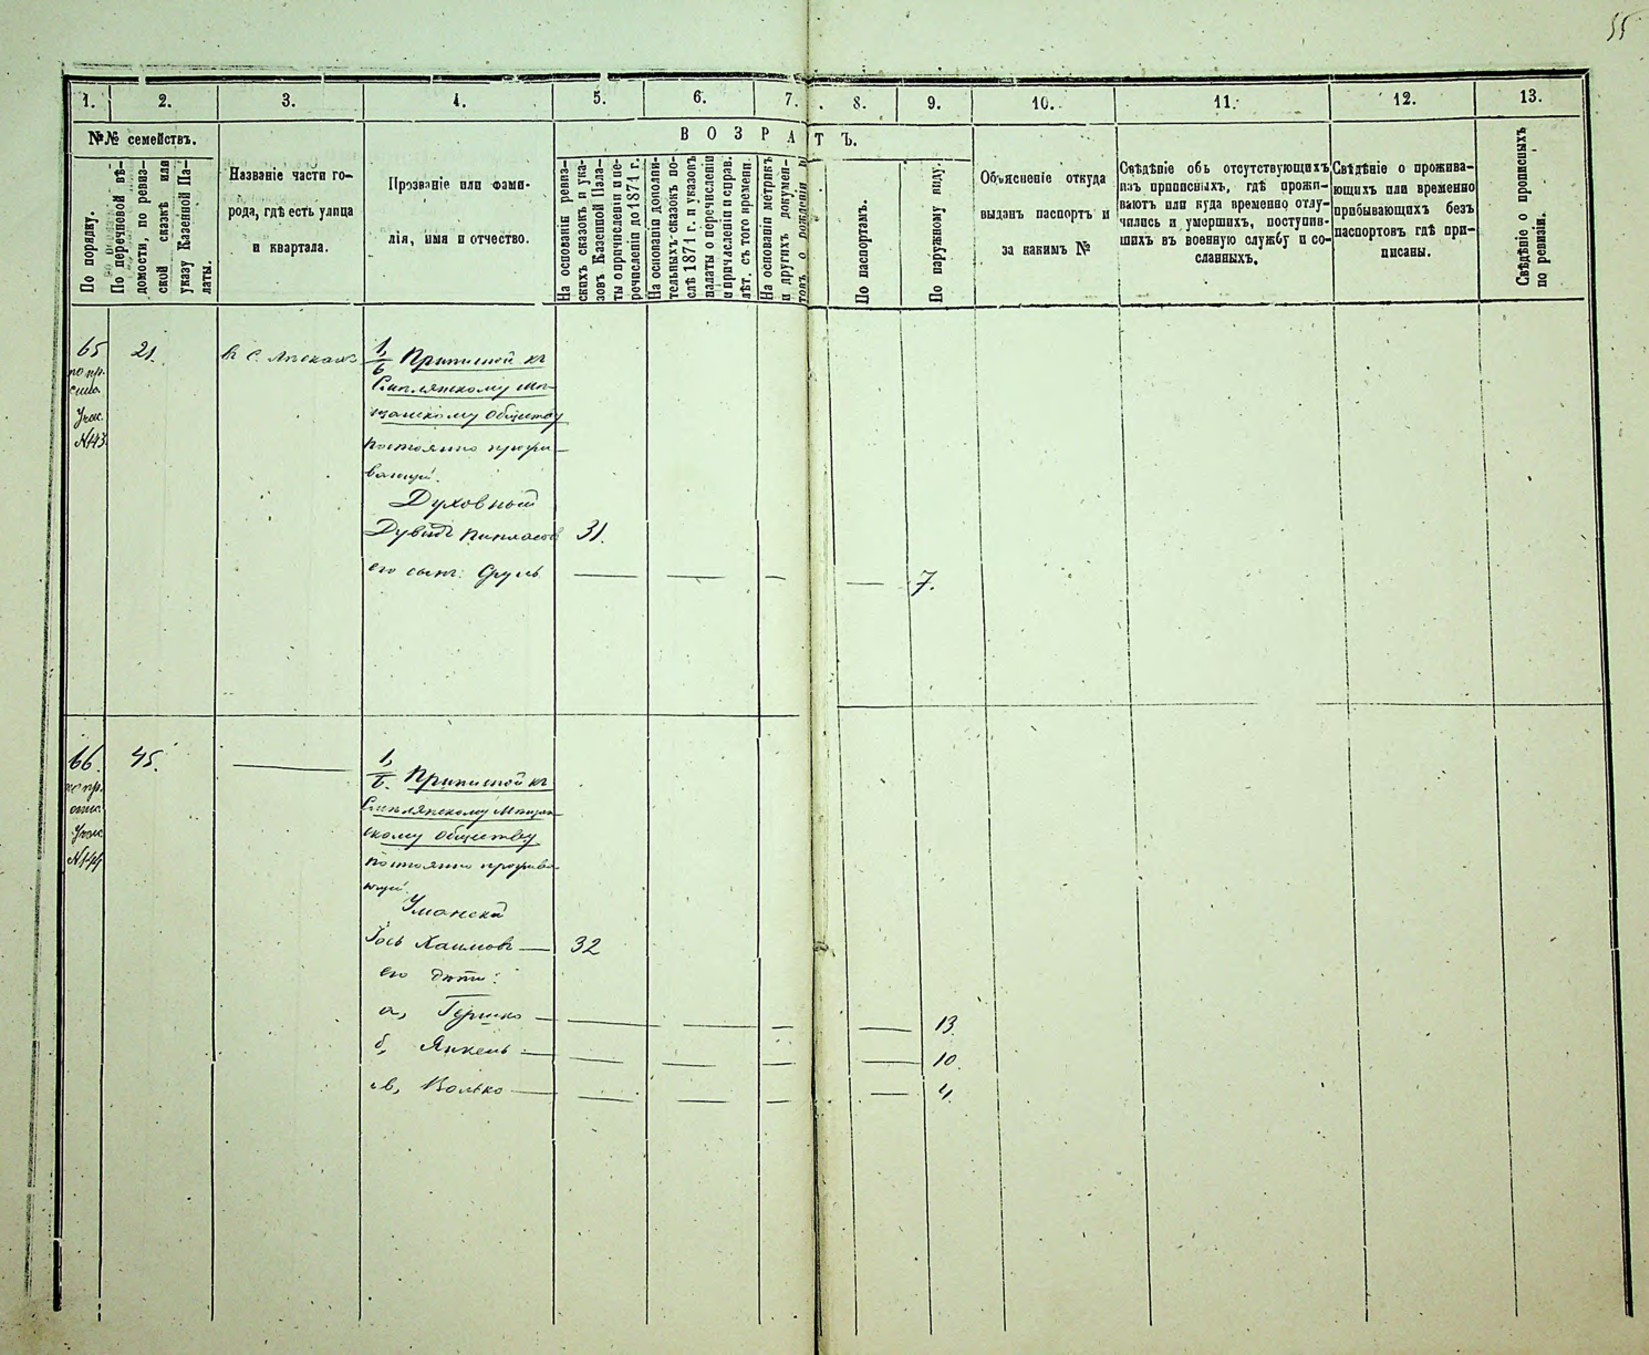 55
1. 2. 3. 4. 5. 6. 7. 8. 9. 10. 11. 12. 13.
№№ семействъ.
По порядку.
По перечневой вѣ-
домости, по ревиз-
ской сказкѣ или
указу Казенной Па-
латы.
Названіе части го-
рода, гдѣ есть улица
и квартала.
Прозваніе или фами-
лія, имя и отчество.
ВОЗРАСТЪ.
На основаніи ревиз-
скихъ сказокъ и ука-
зовъ Казенной Пала-
ты о причисленіи и пе-
речисленіи до 1871 г.
На основаніи дополни-
тельныхъ сказокъ по-
слѣ 1871 г. и указовъ
палаты о перечисленіи
и причисленіи и справ.
лѣт. съ того времени.
На основаніи метрикъ
и другихъ докумен-
товъ о рожденіи
По паспортамъ.
По наружному виду.
Объясненіе откуда
выданъ паспортъ и
за какимъ №
Свѣдѣніе объ отсутствующихъ
изъ приписныхъ, гдѣ прожи-
ваютъ или куда временно отлу-
чились и умершихъ, поступив-
шихъ въ военную службу и со-
сланныхъ.
Свѣдѣніе о прожива-
ющихъ или временно
прибывающихъ безъ
паспортовъ гдѣ при-
писаны.
Свѣдѣніе о прописныхъ
по ревизіи.
65 21.
1/б Приписной къ
Смѣлянскому мѣ-
щанскому обществу
постоянно прожи-
вающій.
Духовный
Дувидъ 31.
его сынъ: Сруль 7.
66. 45.
1/б. Приписной къ
Смѣлянскому Мѣщан
скому обществу
постоянно прожива
ющій.
Уманскій
Іось Хаимовъ 32
его дѣти:
а, Гершко 13.
б, Янкель 10.
в, Волько 4.